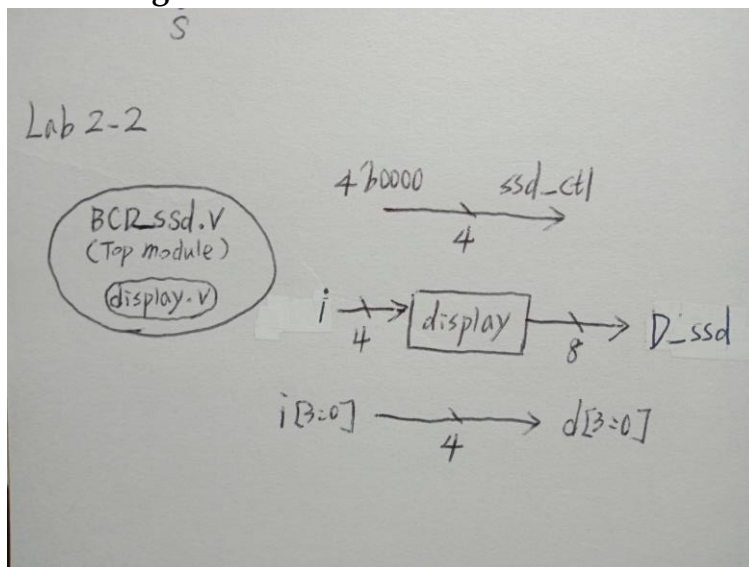 S
Lab 2-2
BCD_ssd.V
(Top module)
display.v
4'b0000 ssd_ctl
4
i 4 display 8 D_ssd
i[3:0] 4 d[3:0]